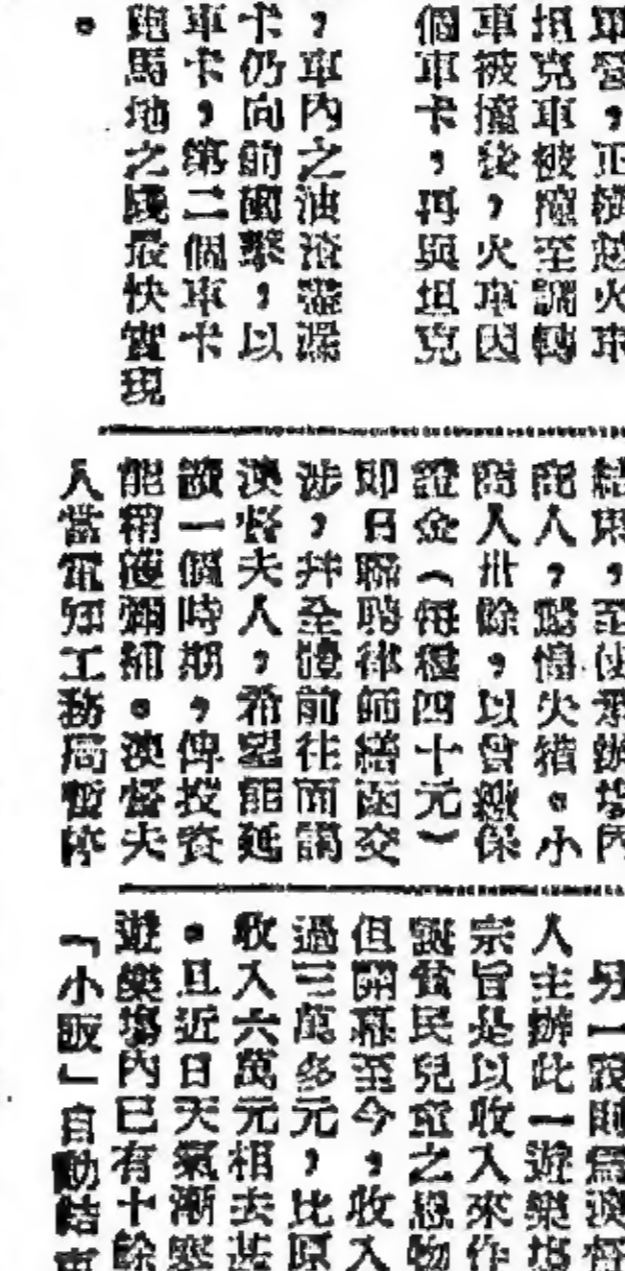 軍營,正橫越火車
坦克車被撞至調轉
車被撞後,火車因
個車卡,再與坦克
,車內之油渣盡漏
卡仍向前衝擊,以
車卡,第二個車卡
跑馬地之議最快實現
。
結束,至使承辦場內
商人,驚惶失措。小
商人卅餘,以曾繳保
證金(每種四十元)
即日聯聘律師繕函交
涉,幷全體前往面謁
澳督夫人,希望能延
讀一個時期,俾投資
能稍獲彌補。澳督夫
人當電知工務局暫停
另一說則為澳督
人主辦此一遊樂塲
宗旨是以收入來作
製貧民兒童之恩物
但開幕至今,收入
過三萬多元,比原
收入六萬元相去甚
。且近日天氣漸寒
遊樂塲內已有十餘
「小販」自動結束